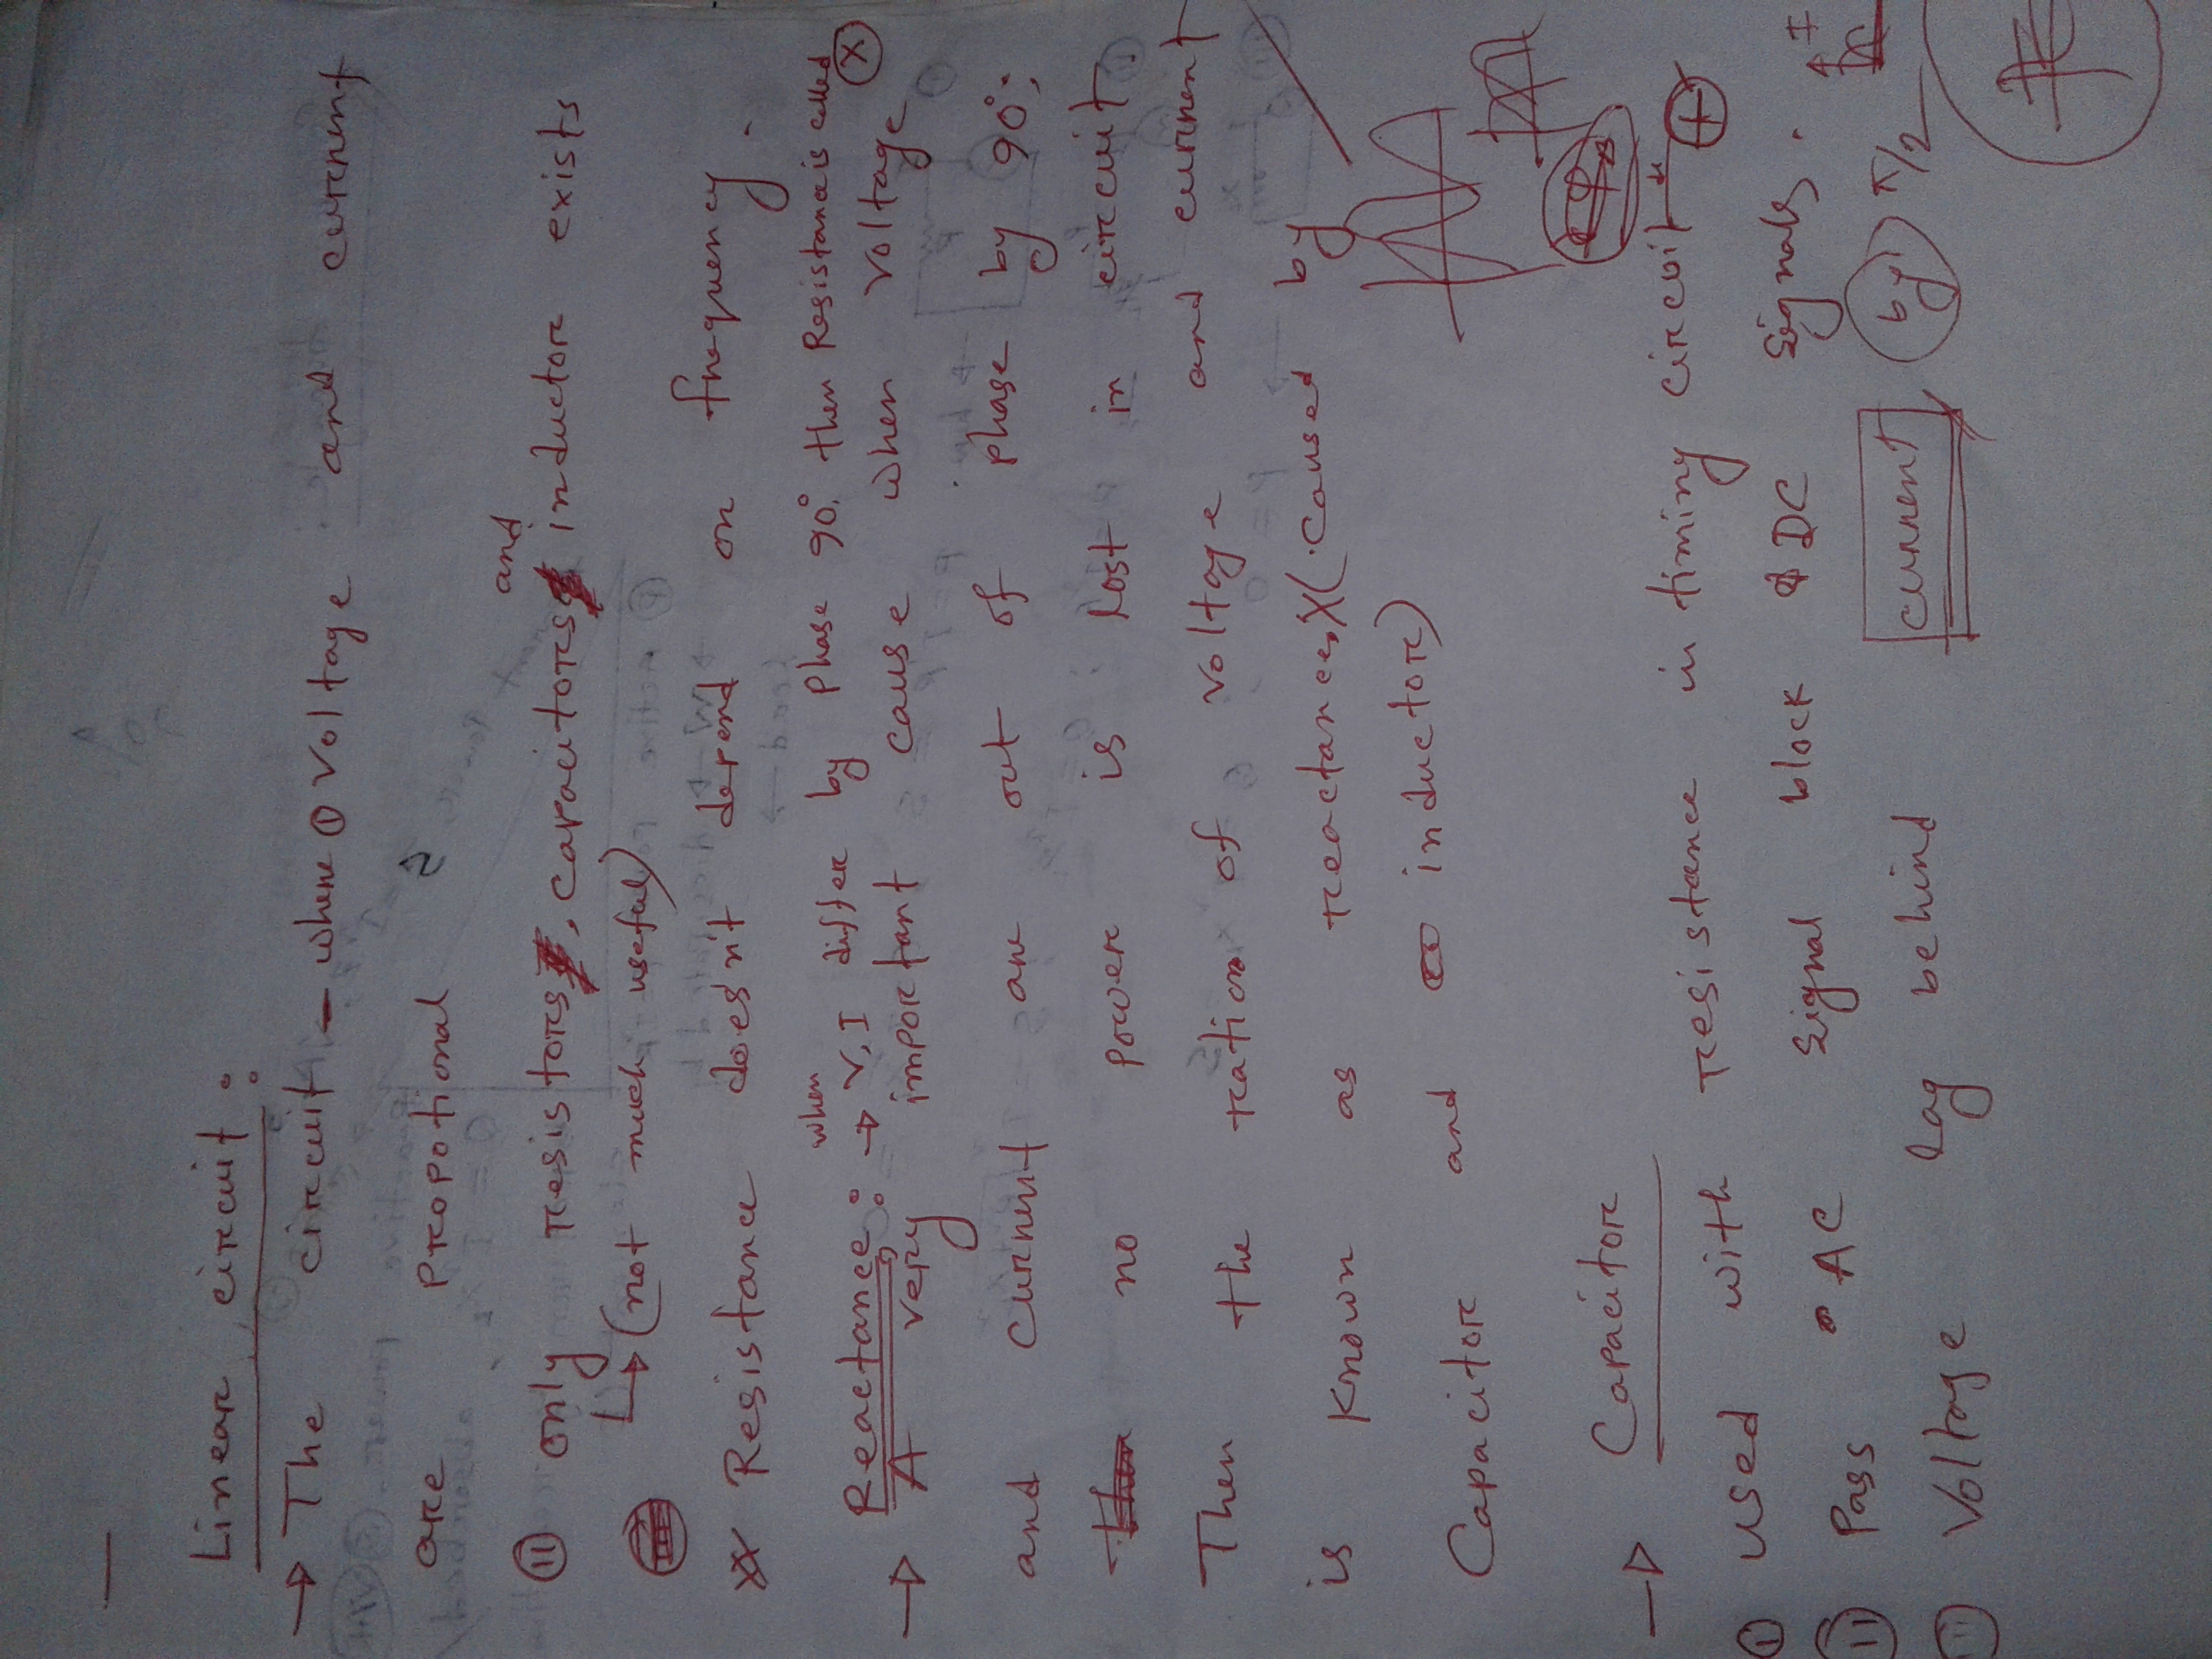 Linear circuit :
→ The circuit – where ① Voltage and current
are propotional
⑪ only resistors, capacitors and inductor exists
↳ (not much useful)
** Resistance doesn't depend on frequency.
Reactance : → when V, I differ by phase 90°, then Resistance is called (X)
→ A very important cause when voltage
and current are out of phase by 90°;
no power is lost in circuit.
Then the ration of voltage and current
is known as reactance, X (caused by
Capacitor and inductor)
→ Capacitor
① used with resistance in timing circuit
⑪ Pass AC signal block DC signals.
I
Voltage lag behind current by π/2